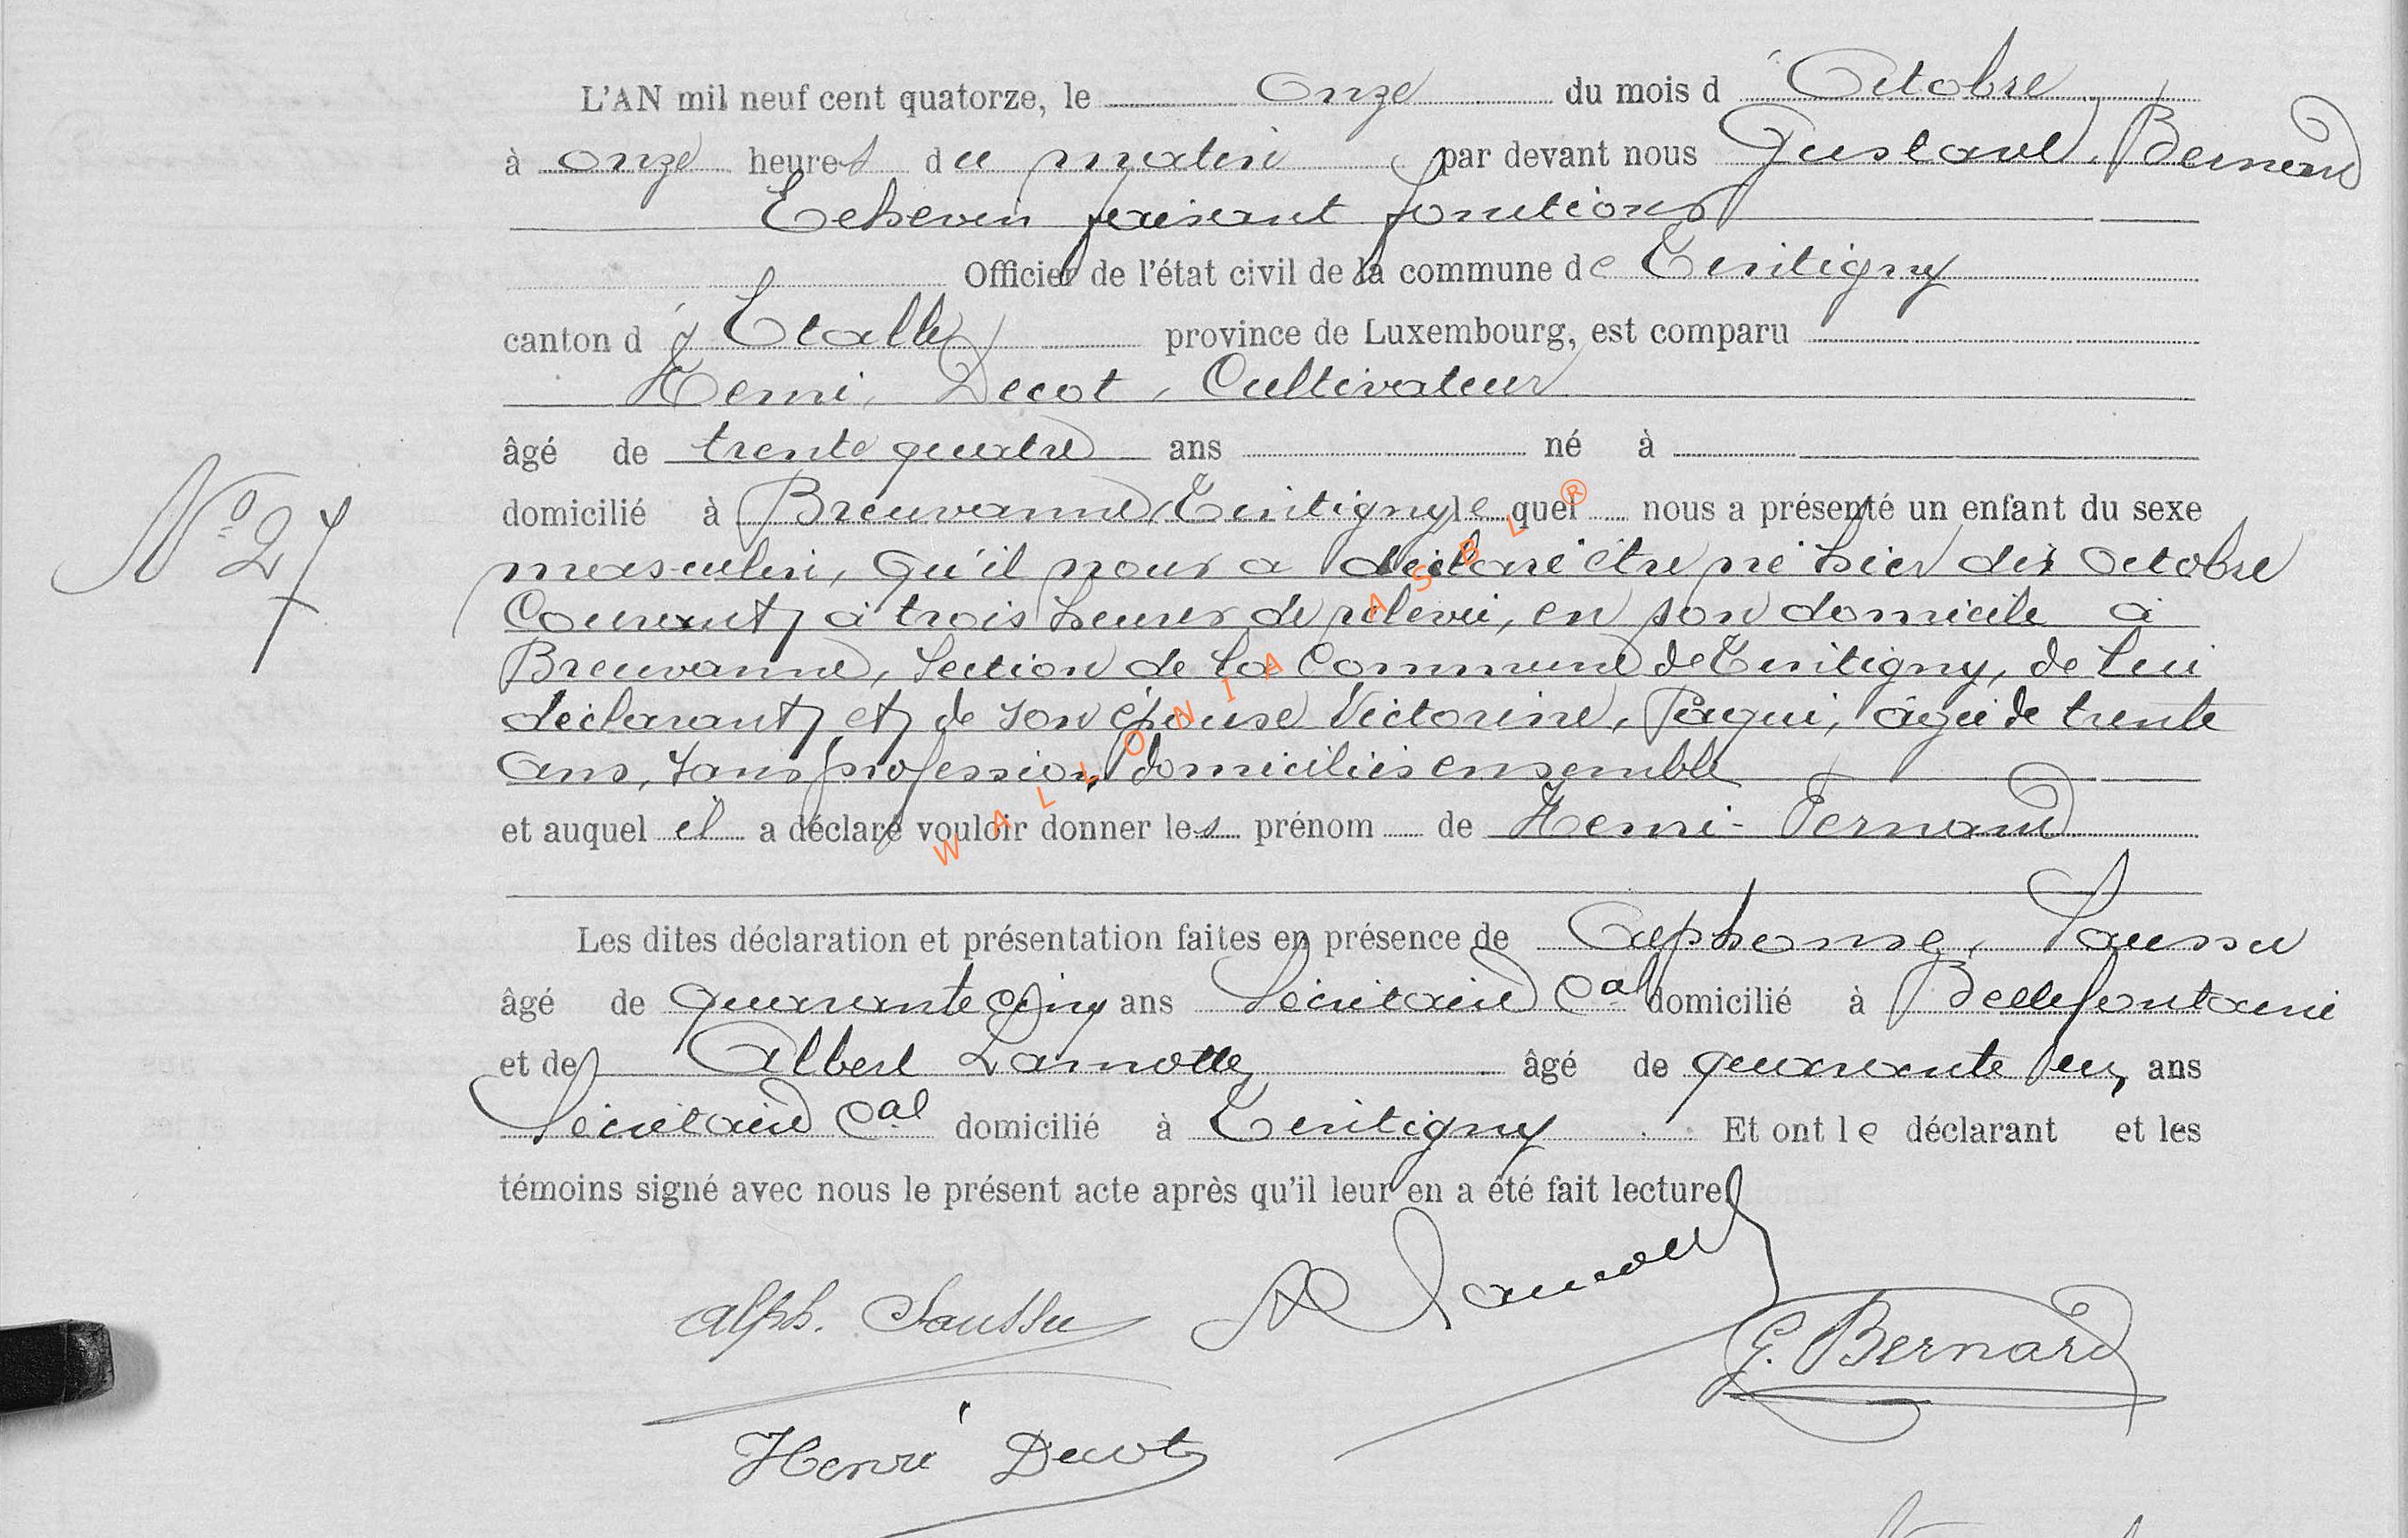 L'AN mil neuf cent quatorze, le onze du mois d'Octobre
à onze heures du matin, par devant nous Gustave, Bernard
Echevin faisant fonctions
Officier de l'état civil de la commune de Tintigny
canton d'Etalle, province de Luxembourg, est comparu
Henri, Decot, Cultivateur
âgé de trente quatre ans né à
domicilié à Breuvanne, (Tintigny) lequel nous a présenté un enfant du sexe
N° 27
masculin, qu'il nous a déclaré être né hier dix Octobre
Courant, à trois heures de relevée, en son domicile à
Breuvanne, Section de la Commune de Tintigny, de lui
déclarant, et, de son épouse Victorine, Paqui, âgée de trente
ans, sans profession, domiciliés ensemble
et auquel il a déclaré vouloir donner les prénom de Henri-Fernand
Les dites déclaration et présentation faites en présence de Alphonse, Saussu
âgé de quarante cinq ans Secrétaire Cal domicilié à Bellefontaine
et de Albert Lamotte, âgé de quarante un, ans
Secrétaire Cal domicilié à Tintigny. Et ont le déclarant et les
témoins signé avec nous le présent acte après qu'il leur en a été fait lecture.
Alph. Saussu A Lamotte
G. Bernard
Henri Decot
WALLONIA ASBL ®